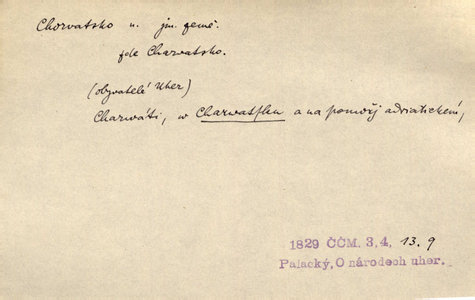 Chorvatsko n. jm. země.
fde Charvatsko.
(obyvatelé Uher)
Charwáti, w Charwatsku a na pomořj adriatickém,
1829 ČČM. 3,4, 13.9
Palacký, O národech uher.